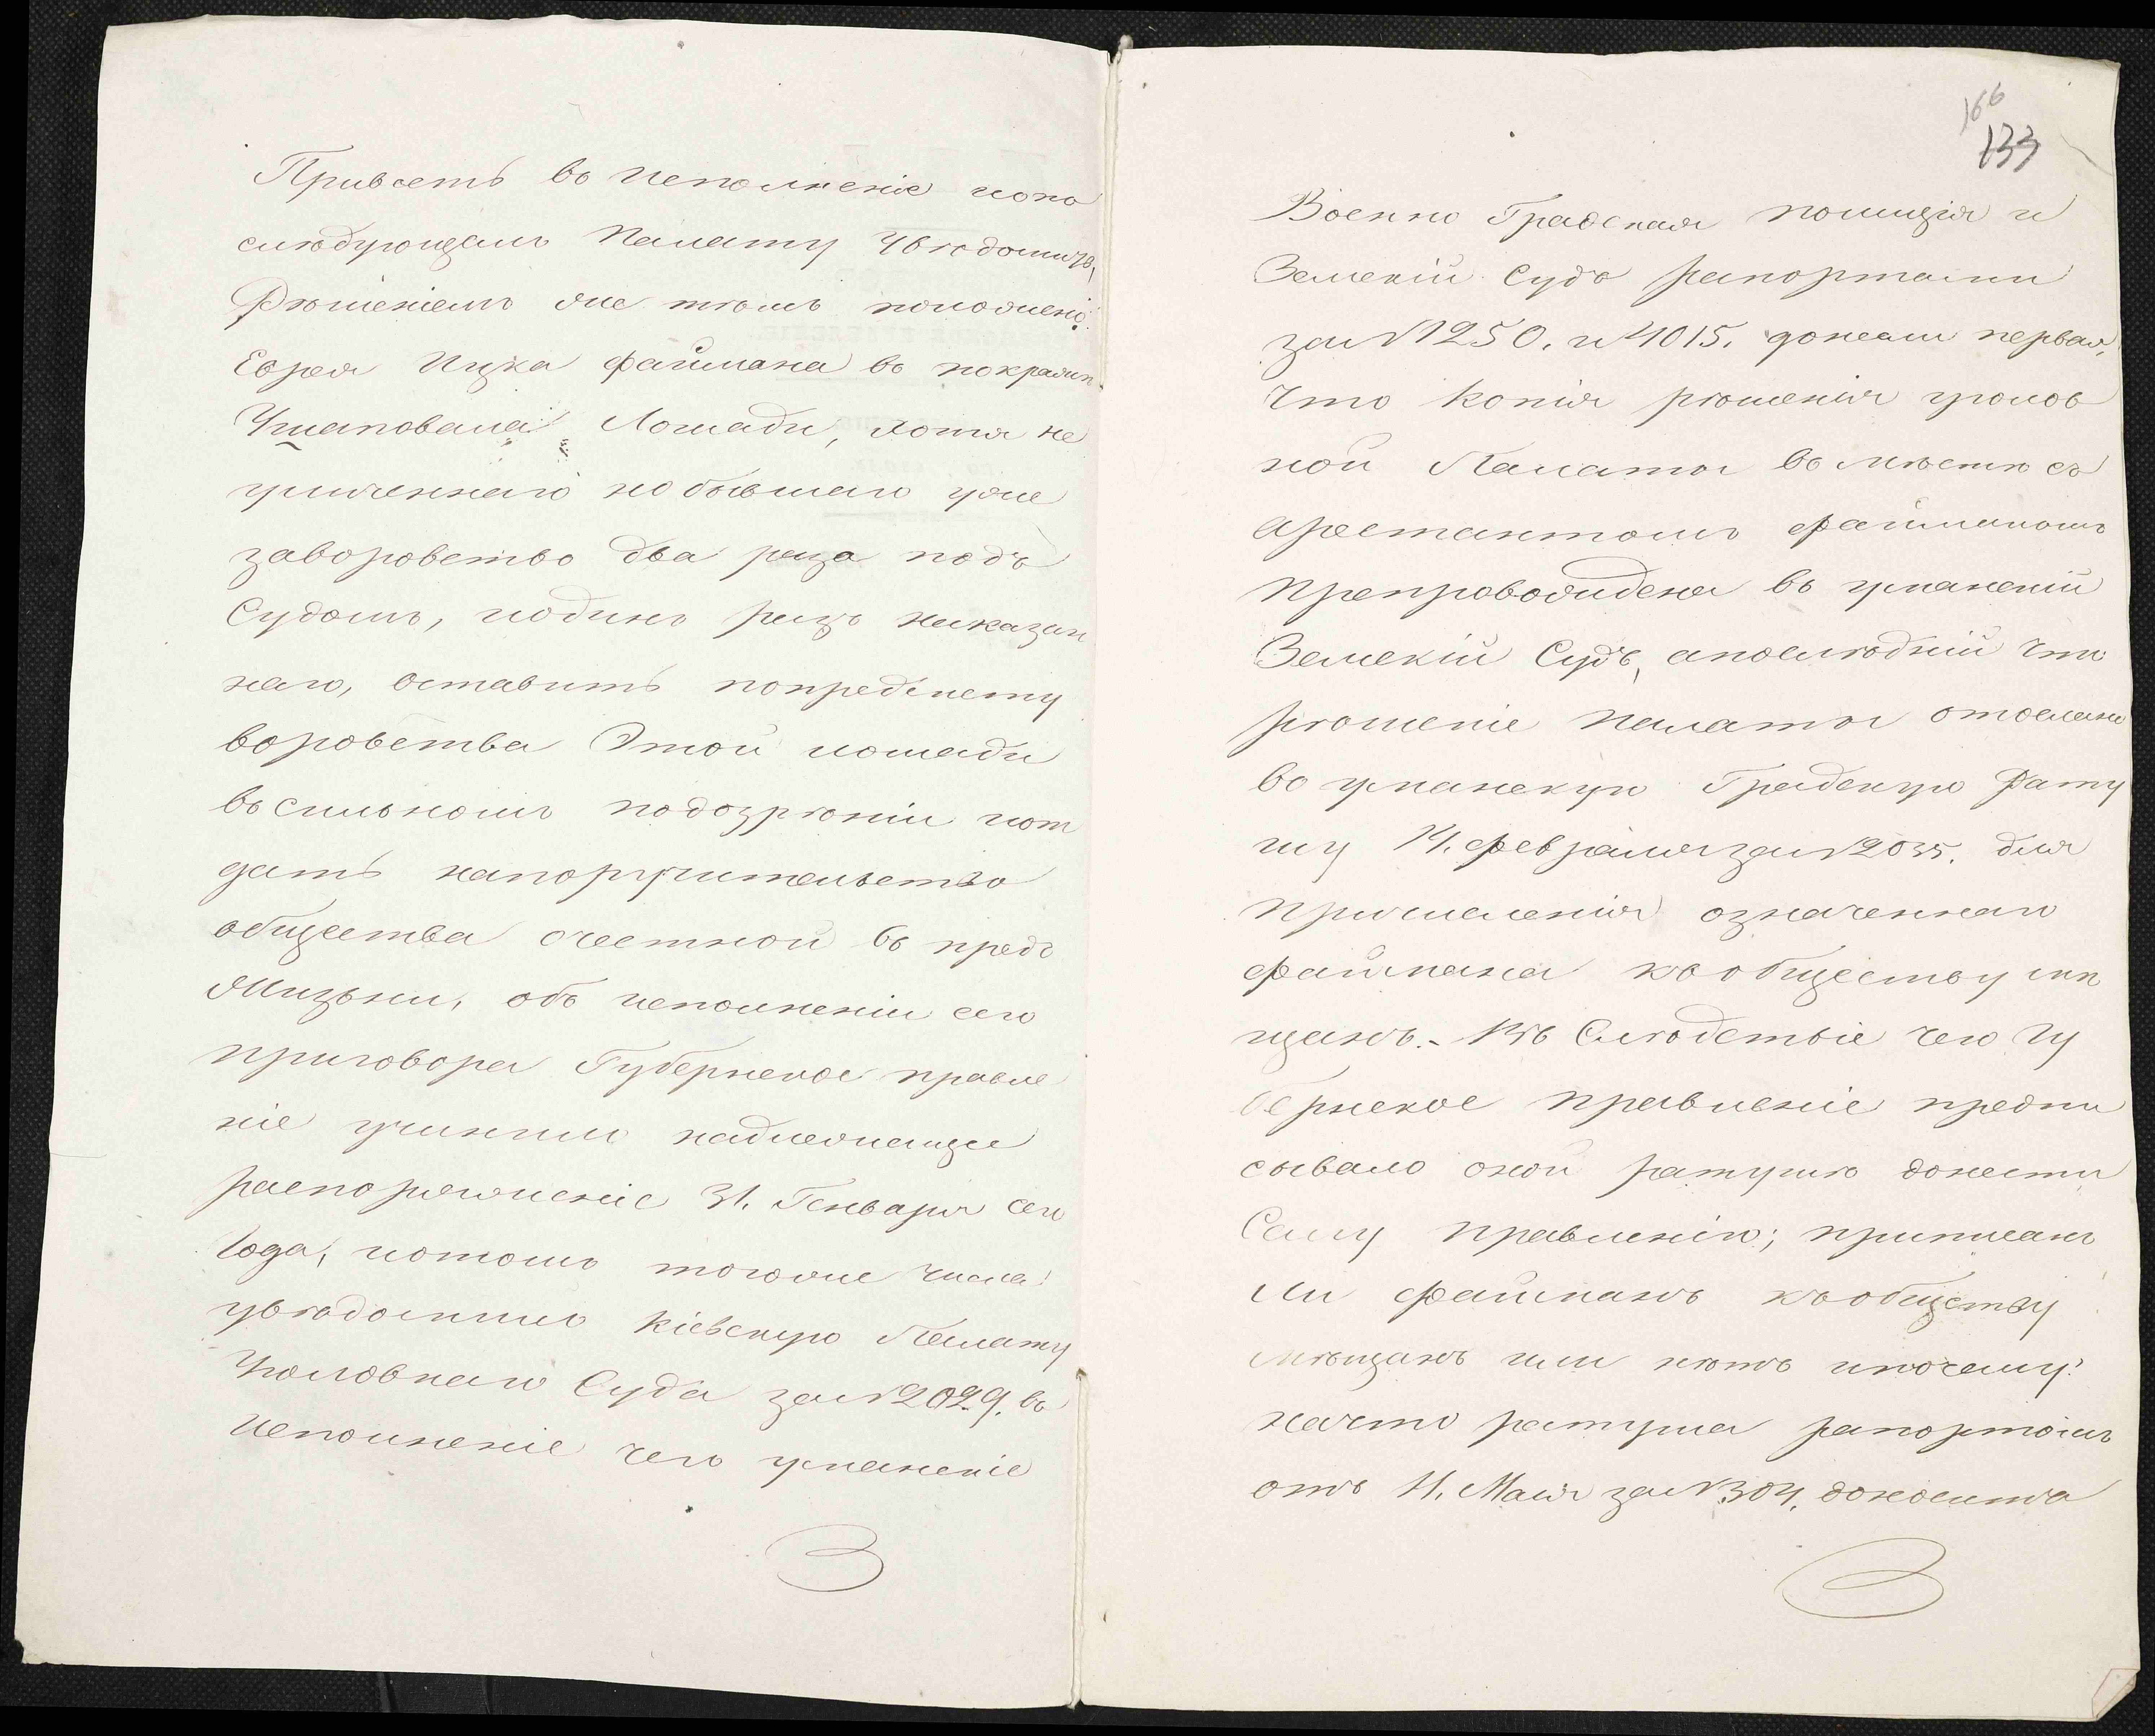 Привесть въ исполненіе ипо
слюдующемъ Палату Увѣдомить,
Рѣшеніемъ же тѣмъ положено:
Еврея Ицка Файмана въ покражѣ
Лошади, хотя не
уличеннаго но бывшаго уже
заворовство два раза подъ
Судомъ, иодинъ разъ наказан
наго, оставить попредмету
воровства Этой лошади
въ сильномъ подозрѣніи иот
дать напоручительство
общества очестной въ предъ
жизьни, объ исполненіи сего
приговора Губернское правле
ніе учинило надлежащее
распоряженіе 31. Генваря сего
года, ипотомъ тогоже числа
увѣдомило Кіевскую Палату
Уголовнаго Суда за№ 2029. въ
Исполненіе чего уманскіе
166
133
Военно Градская полиція и
Земскій Судъ рапортами
за№ 1250. и 4015. донесли первая,
что копія рѣшенія уголов
ной Палаты въ мѣстѣ съ
арестантомъ Файманомъ
препровождена въ уманскій
Земскій Судъ, апослѣдній что
рѣшеніе палаты отослано
въ уманскую Градскую Рату
шу 14. февраля за№ 2035. для
причисленія означеннаго
файмана къобществу мѣ
щанъ.- Въ Слѣдствіе чего Гу
бернское правленіе предпи
сывало оной ратушѣ донести
Сему правленію; приписанъ
ли файманъ къобществу
мѣщанъ или нѣтъ ипочему?
начто ратуша рапортомъ
отъ 11. Маія за№ 304. донесла